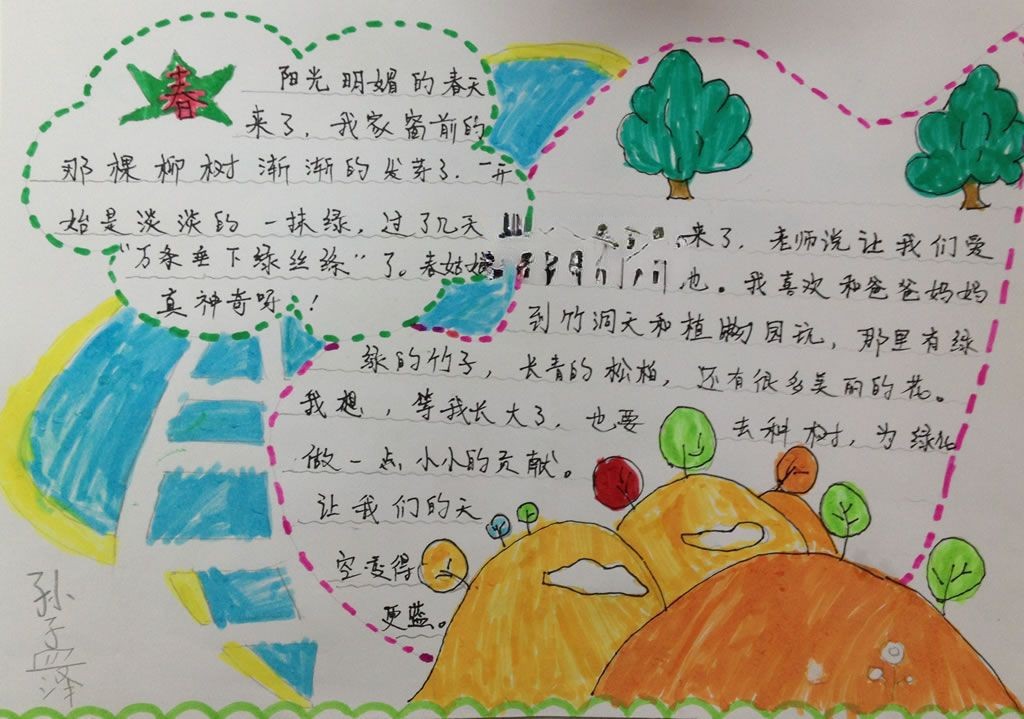 春
阳光明媚的春天
来了，我家窗前的
那棵柳树渐渐的发芽了，一开
始是淡淡的一抹绿，过了几天
“万条垂下绿丝绦”了。春姑娘
真神奇呀！
来了，老师说让我们爱
也。我喜欢和爸爸妈妈
到竹洞天和植物园玩，那里有绿
绿的竹子，长青的松柏，还有很多美丽的花。
我想，等我长大了，也要去种树，为绿化
做一点小小的贡献。
让我们的天
空变得
更蓝。
孙子
泽